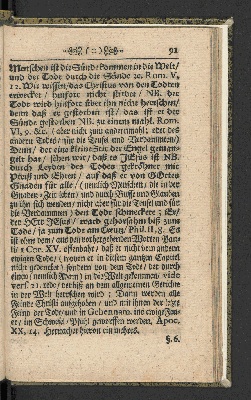 ( o ) 91
Menschen ist die Sünde kommen in die Welt/
und der Tod durch die Sünde ꝛc. Rom. V,
12. Wir wissen/ das Christus von den Todten
erwecket / hinfort nicht stirbet / NB. der
Tod wird hinfort über ihn nicht herrschen/
denn daß er gestorben ist / das ist er der
Sünde gestorben NB. zu einem mahl. Rom.
VI, 9. &c. / aber nicht zum andernmahl/ oder des
andern Todes / für die Teufel und Verdammten/
Denn/ der eine kleine Zeit der Engel gemangelt
hat / sehen wir/ daß es JEsus ist NB.
durch Leyden des Todes gekrönet mit
Preiß und Ehren / auf daß er von GOttes
Gnaden für alle / (nemlich Menschen / die in der
Gnaden-Zeit leben / und durch Busse und Glauben
zu ihm sich wenden/ nicht aber für die Teufel und für
die Verdammten / den Tod schmeckte; Der
HErr JEsus / ward gehorsam biß zum
Tode / ja zum Tode am Creutz / Phil. II, 8. Es
ist
Paulus 1 Cor. XV. offenbahr / daß er nicht dem andern
ewigen Tode / sondern von dem Tode / der durch
einen (nemlich Adam) in die Welt gekommen
v. 21. rede / der biß an dem allgemeinen Gerichte
in der Welt herrschen wird ; Dann werden alle
Feinde Christi aufgehaben / und mit ihnen der letzte
Feind der Tod/ und in den ewigen Feuer
/ im Schwefel / Pfuhl geworffen werden, Apoc.
XX, 14. Hernacher hievon ein mehrers.
§. 6.